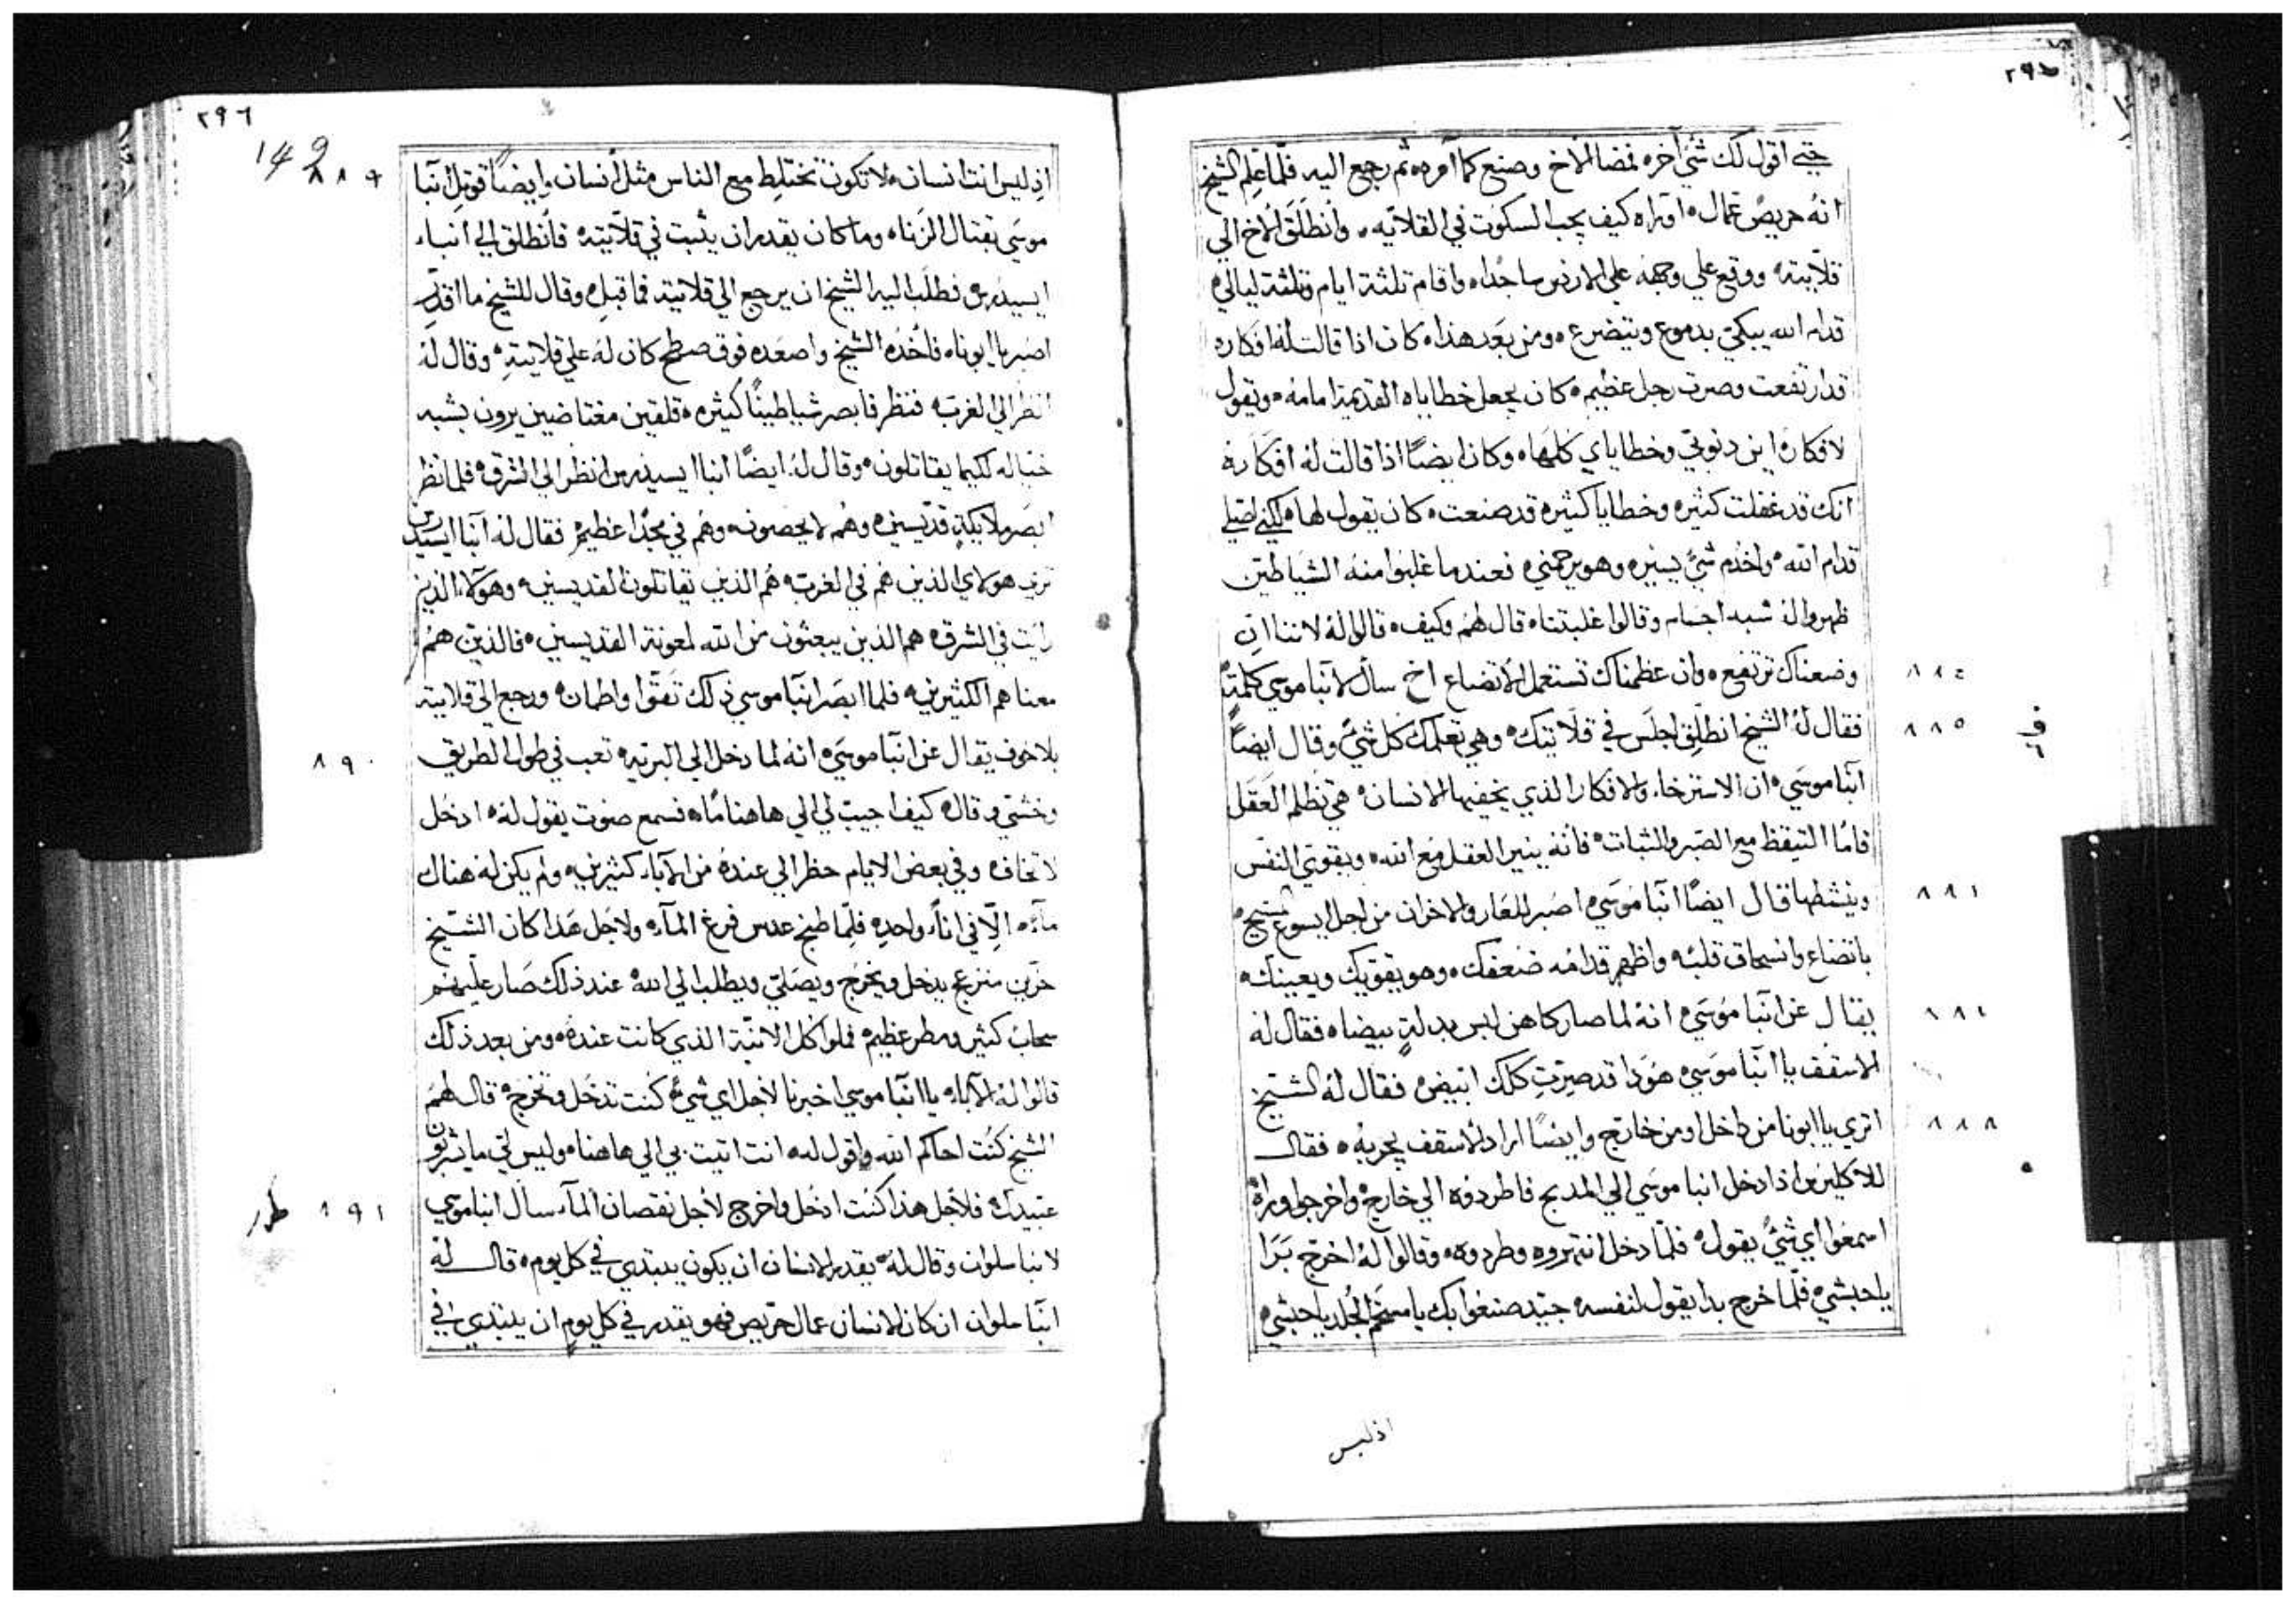 ٢٩٥
حتي اقول لك شي آخره فمضا الاخ وصنع كما آمره ثم رجع اليه فلما علم الشيخ
انه حريص عمال اوراه كيف يجب السكوت في القلايه وانطلق الاخ الي
قلايته ووقع علي وجهه علي الارض ساجدا واقام تلثة ايام وتلثة ليالي
قدام الله يبكي بدموع وتيضرع ومن بعد هذا كان اذا قالت له افكاره
قد ارتفعت وصرت رجل عظيم كان يجعل خطاياه القديمة امامه ويقول
لافكاره اين دنوبي وخطاياي كلها وكان ايضا اذا قالت له افكاره
انك قد غفلت كثيره وخطايا كثيره قد صنعت كان يقول لها لكني اصلي
قدام الله واخدم شي يسير وهو يرحمني فعندما غلبوا منه الشياطين
ظهروا له شبه اجسام وقالوا غلبتنا قال لهم وكيف قالوا له لاننا ان
وضعناك ترتفع وان عظمناك تستعمل الاتضاع اخ سال لانبا موسي كلمة
٨٨٤
فقال له الشيخ انطلق اجلس في قلايتك وهي تعلمك كل شي وقال ايضا
٨٨٥
انبا موسي ان الاسترخاء والافكار الذي يخفيها الانسان هي تظلم العقل
فاما التيقظ مع الصبر والثبات فانه ينير العقل مع الله ويقوي النفس
وينشطها قال ايضا انبا موسي اصبر للعار والاحزان من اجل ايسوع المسيح
٨٨٦
باتضاع وانسحاق قلبه واظهر قدامه ضعفك وهو يقويك ويعينك
يقال عن انبا موسي انه لما صار كاهن لبس بدلة بيضاه فقال له
الاسقف يا انبا موسي هوذا قد صيرت كلك ابيض فقال له الشيخ
اتري يا ابونا من داخل او من خارج وايضا اراد الاسقف يجربه فقال
٨٨٨
للاكليرس اذا دخل انبا موسي الي المدبح فاطردوه الي خارج واخرجوا وراه
اسمعوا اي شي يقول فلما دخل انتهروه وطردوه وقالوا له اخرج برا
يا حبشي فلما خرج بدا يقول لنفسه جيد صنعوا بك يا مسخم الجلد يا حبشي
اذ ليس
٢٩٦
142
اذ ليس انت انسان لا تكون تختلط مع الناس مثل انسان وايضا قوتل انبا
٨٨٩
موسي بقتال الزناه وما كان يقدر ان يثبت في قلايته فانطلق الي انباء
ايسيدرس فطلب اليه الشيخ ان يرجع الي قلايته فما قبل وقال للشيخ ما اقدر
اصبر يا ابوناه فاخده الشيخ واصعده فوق صطح كان له علي قلايته وقال له
انظر الي الغرب فنظر فابصر شياطينا كثيره قلقين مغتاضين يرون بشبه
خياله لكيما يقاتلون وقال له ايضا انبا ايسيدرس انظر الي الشرق فلما نظر
ابصر ملايكة قديسين وهم لا يحصون وهم في مجدا عظيم فقال له انبا ايسيدرس
تري هولاي الذين هم في الغرب هم الذين يقاتلون القديسين وهولاء الذين
رايت في الشرق هم الذين يبعثون من الله لمعونة القديسين فالذين هم
معنا هم الكثيرين فلما ابصر انبا موسي ذلك تقوا واطمان ورجع الي قلايته
بلا خوف يقال عن انبا موسي انه لما دخل الي البريه تعب في طول الطريق
٨٩٠
وخشي وقال كيف اجيب لي الي هاهنا ماه فسمع صوت يقول له ادخل
لا تخاف وفي بعض الايام حظر الي عنده من الاباء كثيرين ولم يكن له هناك
مآء الا في اناء واحده فلما طبخ عدس فرغ المآء ولاجل هذا كان الشيخ
حزين منزعج يدخل ويخرج ويصلي ويطلب الي الله عند ذلك صار عليهم
سحاب كثير ومطر عظيم فملوا كل الانية الذي كانت عنده ومن بعد ذلك
قالوا له الاباء يا انبا موسي اخبرنا لاجل اي شي كنت تدخل وتخرج قال لهم
الشيخ كنت احاكم الله واقول له انت اتيت بي الي هاهنا وليس لي ما يشربون
عبيدك فلاجل هذا كنت ادخل واخرج لاجل نقصان المآء سال انبا موسي
٨٩١
لانبا سلوان وقال له يقدر الانسان ان يكون يبتدي في كل يوم قال له
انبا سلوان ان كان الانسان عمال حريص فهو يقدر في كل يوم ان يبتدي في